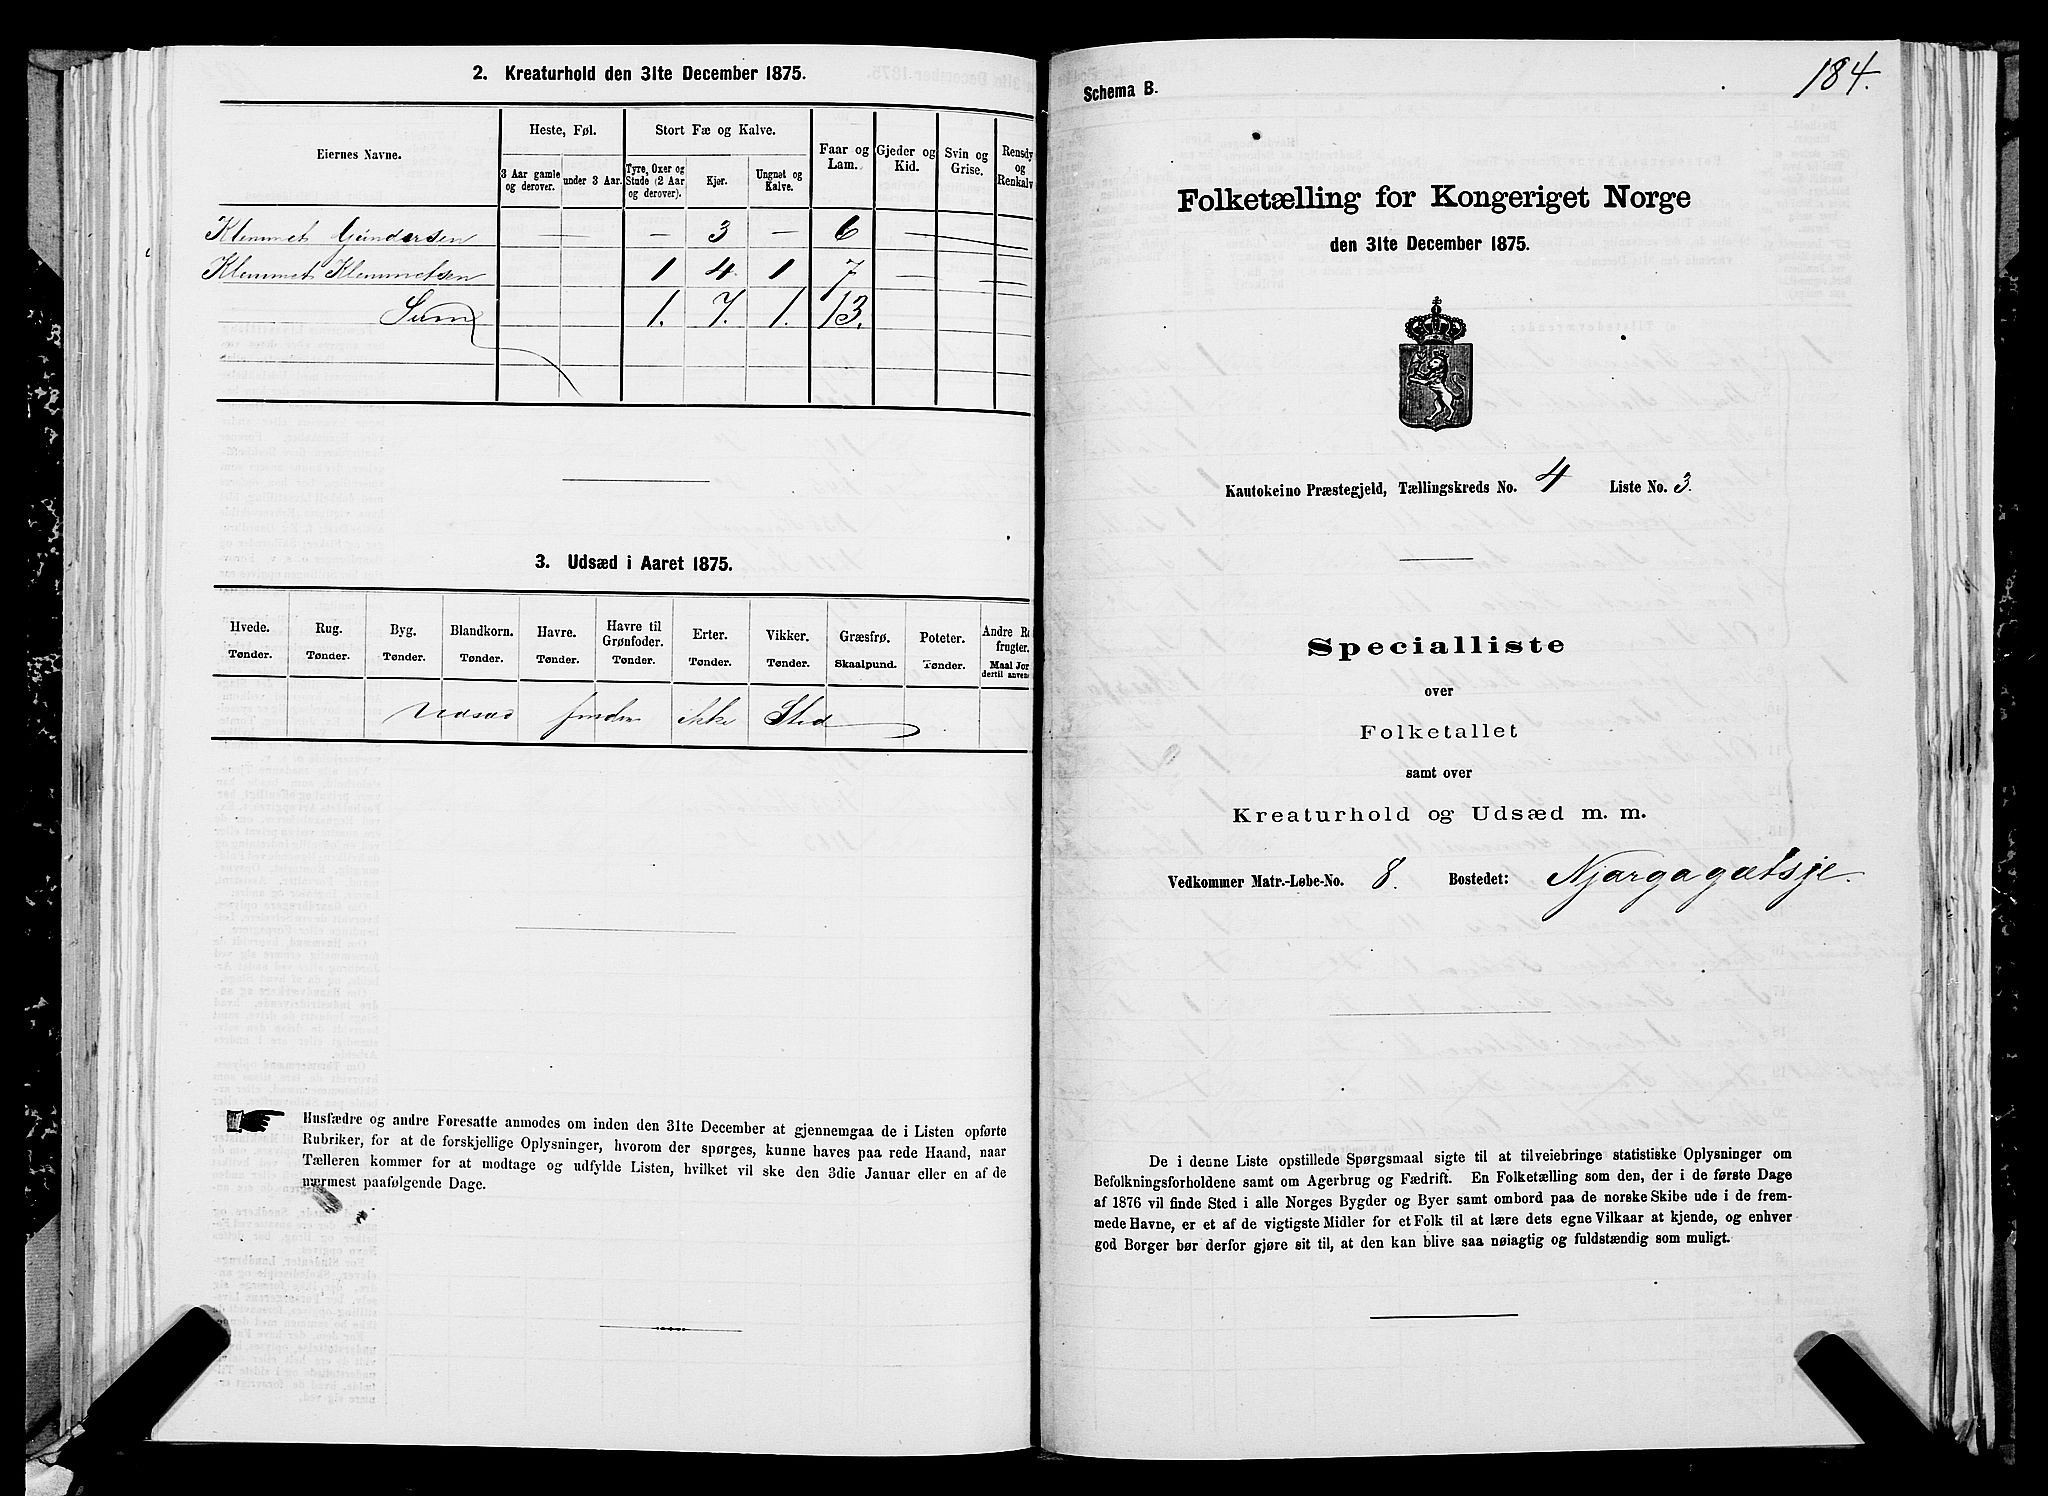 2. Kreaturhold den 31te December 1875.
Eiernes Navne.
Heste, Føl.
Stort Fæ og Kalve.
Faar og Lam.
Gjeder og Kid.
Svin og Grise.
Rensdy og Renkalv
3 Aar gamle og derover.
under 3 Aar.
Tyre, Oxer og Stude (2 Aar og derover).
Kjør.
Ungnøt og Kalve.
Klemmet Gundersen — — — 3 — 6 — — —
Klemmet Klemmetsen 1 4 1 7 — —
Sum 1. 7. 1. 13.
3. Udsæd i Aaret 1875.
Hvede. Tønder.
Rug. Tønder.
Byg. Tønder.
Blandkorn. Tønder.
Havre. Tønder.
Havre til Grønfoder. Tønder.
Erter. Tønder.
Vikker. Tønder.
Græsfrø. Skaalpund.
Poteter. Tønder.
Andre R frugter. Maal Jor dertil anven
Udsæd finder ikke Sted
Husfædre og andre Foresatte anmodes om inden den 31te December at gjennemgaa de i Listen opførte
Rubriker, for at de forskjellige Oplysninger, hvorom der spørges, kunne haves paa rede Haand, naar
Tælleren kommer for at modtage og udfylde Listen, hvilket vil ske den 3die Januar eller en af de
nærmest paafølgende Dage.
184.
Schema B.
Folketælling for Kongeriget Norge
den 31te December 1875.
Kautokeino Præstegjeld, Tællingskreds No. 4 Liste No. 3.
Specialliste
over
Folketallet
samt over
Kreaturhold og Udsæd m. m.
Vedkommer Matr.-Løbe-No. 8. Bostedet: Njargagætsje.
De i denne Liste opstillede Spørgsmaal sigte til at tilveiebringe statistiske Oplysninger om
Befolkningsforholdene samt om Agerbrug og Fædrift. En Folketælling som den, der i de første Dage
af 1876 vil finde Sted i alle Norges Bygder og Byer samt ombord paa de norske Skibe ude i de frem-
mede Havne, er et af de vigtigste Midler for et Folk til at lære dets egne Vilkaar at kjende, og enhver
god Borger bør derfor gjøre sit til, at den kan blive saa nøiagtig og fuldstændig som muligt.